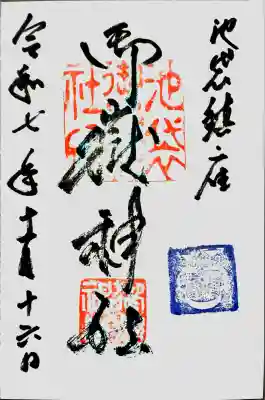 池袋鎮座
御嶽神社
池袋
御嶽
神社
令和七年十一月十六日